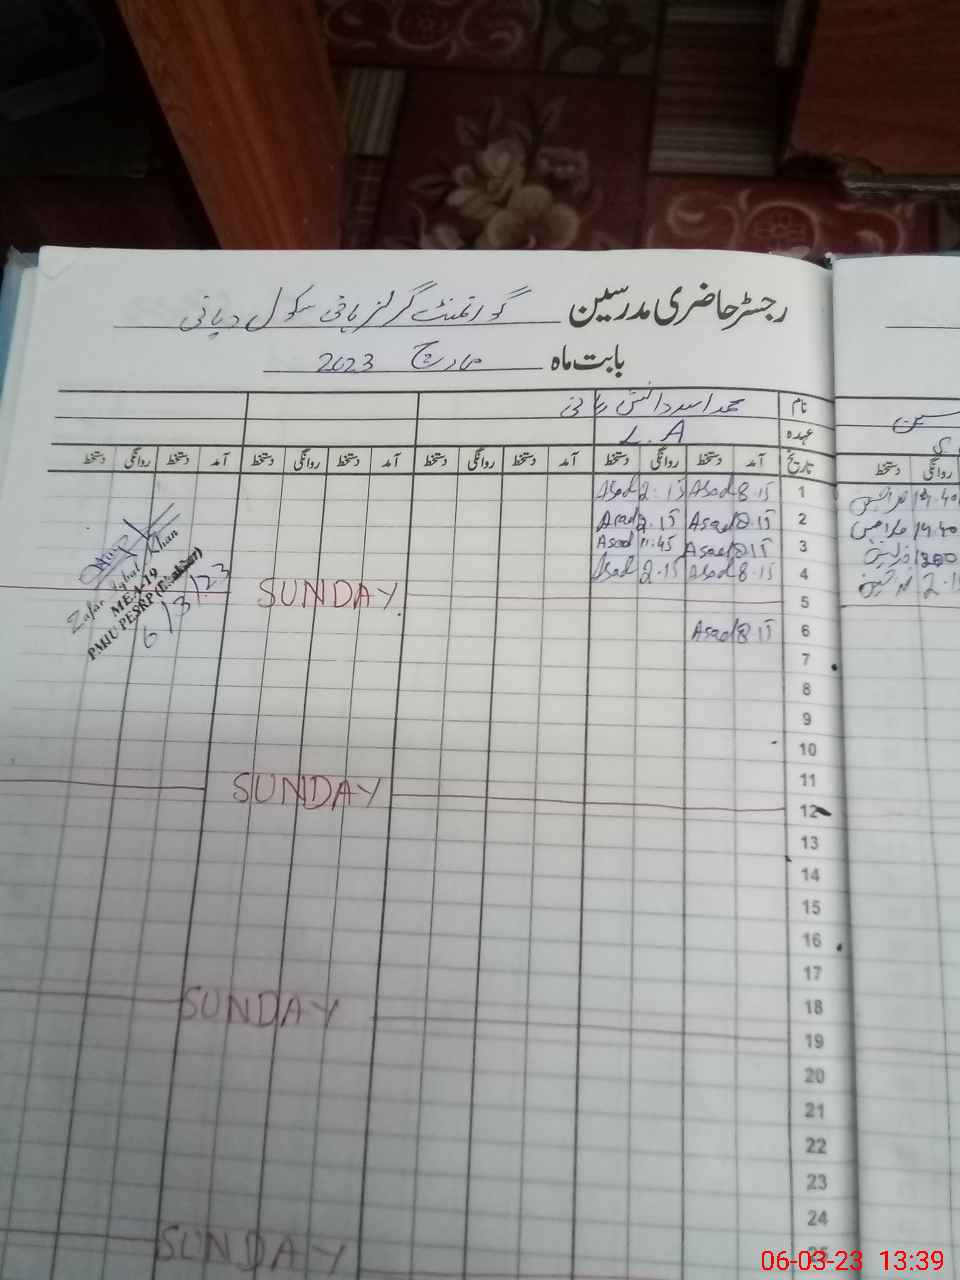 رجسٹر حاضری مدرسین گورنمنٹ گرلز ہائی سکول
بابت ماہ مارچ 2023
نام محمد اسد دانش
عہدہ L.A
تاریخ آمد دستخط روانگی دستخط آمد دستخط روانگی دستخط آمد دستخط روانگی دستخط آمد دستخط روانگی دستخط
1 8.15 Asad 2.15 Asad
2 8.15 Asad 2.15 Asad
3 8.15 Asad 11.45 Asad
4 8.15 Asad 2.15 Asad
5 SUNDAY
6 8.15 Asad
7
8
9
10
11
12 SUNDAY
13
14
15
16
17
18
19 SUNDAY
20
21
22
23
24
25
SUNDAY
Zafar Iqbal Khan
MEA-19
PMIU PESRP
6/3/23
روانگی دستخط
06-03-23 13:39